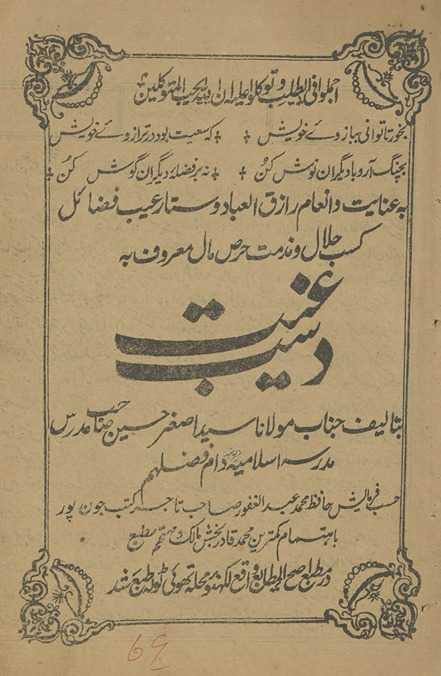 اجملوا فی الطلب و توکلوا علی الله ان الله یحب المتوکلین
بخور تا توانی ببازوئے خویش ٭ کہ سعیت بود در ترازوئے خویش
بچنگ آر و با دیگران نوش کن ٭ نہ بر فضلۂ دیگران گوش کن
بہ عنایت و انعام رازق العباد و ستار عیب فضائل
کسب حلال و مذمت حرص مال معروف بہ
دست غیب
بتالیف جناب مولانا سید اصغر حسین صاحب مدرس
مدرسہ اسلامیہ دام فضلہم
حسب فرمایش حافظ محمد عبد الغفور صاحب تاجر کتب جون پور
باہتمام کمترین محمد قادر بخش مالک و مہتمم مطبع
در مطبع اصح المطابع واقع لکہنؤ محلہ تہوئی ٹولہ طبع شد